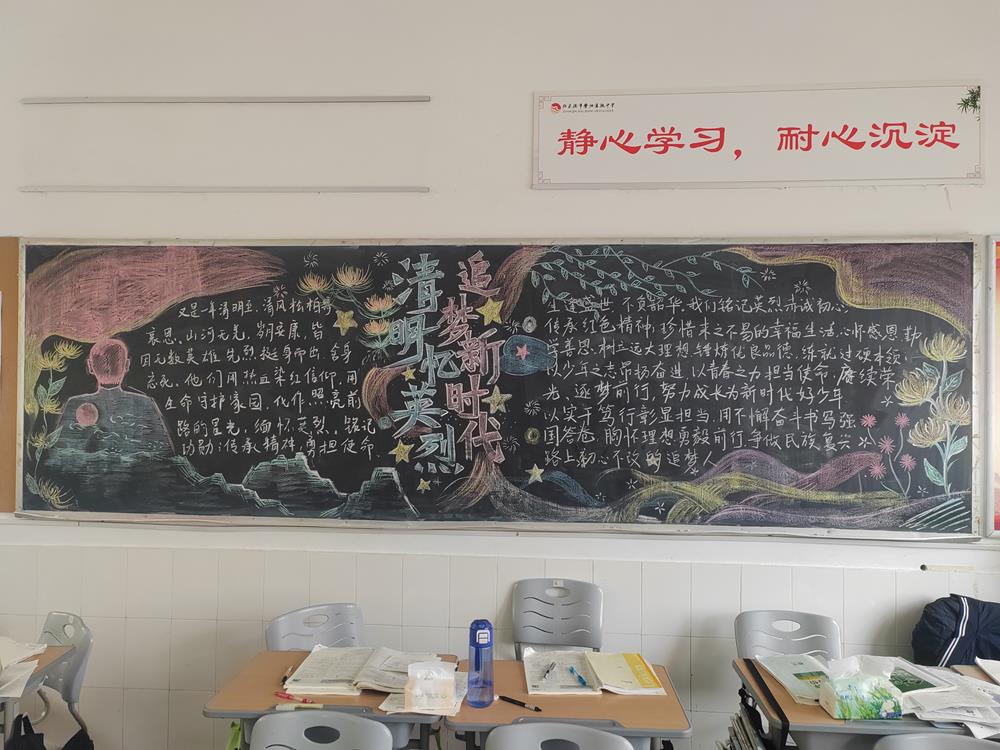 静心学习，耐心沉淀
清明忆英烈
追梦新时代
又是一年清明至，清风松柏寄
哀思，山河无恙，岁月安康，皆
因无数英雄先烈挺身而出，舍身
忘死，他们用热血染红信仰，用
生命守护家园，化作照亮前
路的星光，缅怀英烈，铭记
功勋；传承精神，勇担使命
生逢盛世，不负韶华，我们铭记英烈赤诚初心
传承红色精神，珍惜来之不易的幸福生活，心怀感恩，勤
学善思，树立远大理想，锤炼优良品德，练就过硬本领，
以少年之志昂扬奋进，以青春之力担当使命，赓续荣
光、逐梦前行，努力成长为新时代好少年
以实干笃行彰显担当，用不懈奋斗书写强
国答卷，胸怀理想勇毅前行，争做民族复兴
路上初心不改的追梦人